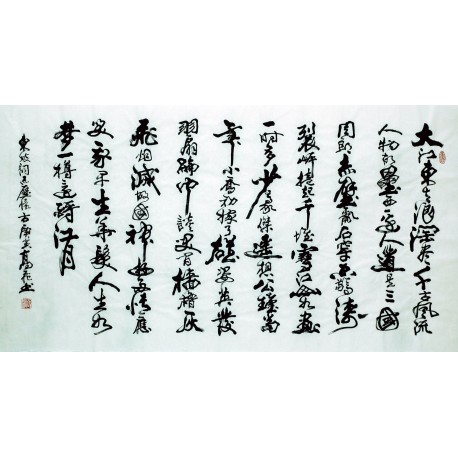 大江東去浪淘尽千古風流
人物故壘西邊人道是三國
周郎赤壁亂石穿空驚濤
裂岸捲起千堆雪江山如畫
一時多少豪傑遥想公瑾當
年小喬初嫁了雄姿英發
羽扇綸巾談笑間檣櫓灰
飛烟滅故國神遊多情應
笑我早生華髮人生如
夢一樽還酹江月
東坡詞赤壁懷古庚寅